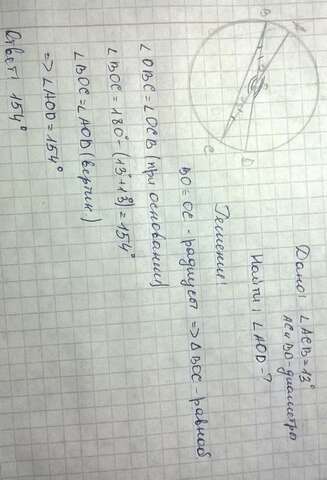 A
B
O
D
C
Дано: ∠ACB=13°
AC и BD-диаметры
Найти: ∠AOD-?
Решение:
BO=OC - радиусы => ΔBOC - равноб
∠OBC=∠OCB (при основании)
∠BOC=180°-(13°+13°)=154°
∠BOC=∠AOD (вертик.)
=> ∠AOD=154°
Ответ: 154°